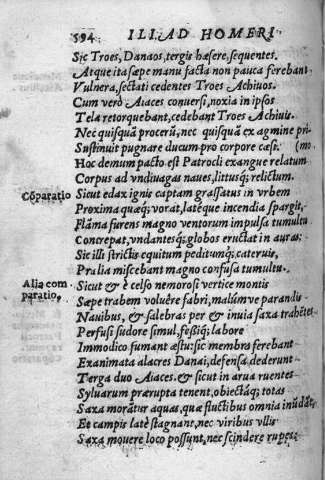 594 ILIAD HOMERI
Sic Troes, Danaos, tergis hæsere, sequentes.
Atque ita sæpe manu facta non pauca ferebant
Vulnera, sectati cedentes Troes Achiuos.
Cum verò Aiaces conuersi, noxia in ipsos
Tela retorquebant, cedebant Troes Achiuis.
Nec quisquã procerũ, nec quisquã ex agmine pri-
Sustinuit pugnare ducum pro corpore cæsi. (mo
Hoc demum pacto est Patrocli exangue relatum
Corpus ad vndiuagas naues, littusq; relictum.
Cõparatio Sicut edax ignis captam grassatus in vrbem
Proxima quæq; vorat, latéque incendia spargit,
Flãma furens magno ventorum impulsa tumultu
Contrepat, vndantesq; globos eructat in auras:
Sic illi strictis equitum peditumq; cateruis,
Prælia miscebant magno confusa tumultu.
Alia com Sicut & è celso nemorosi vertice montis
paratio. Sæpe trabem voluêre fabri, malúmve parandis
Nauibus, & salebras per & inuia saxa trahẽtes
Perfusi sudore simul, feßiq; labore
Immodico fumant æstu: sic membra ferebant
Exanimata alacres Danai, defensa dederunt
Terga duo Aiaces, & sicut in arua ruentes
Syluarum prærupta tenent, obiectaq; totas
Saxa morãtur aquas, quæ fluctibus omnia inũdãt,
Et campis latè stagnant, nec viribus vllis
Saxa mouere loco possunt, nec scindere rupes: